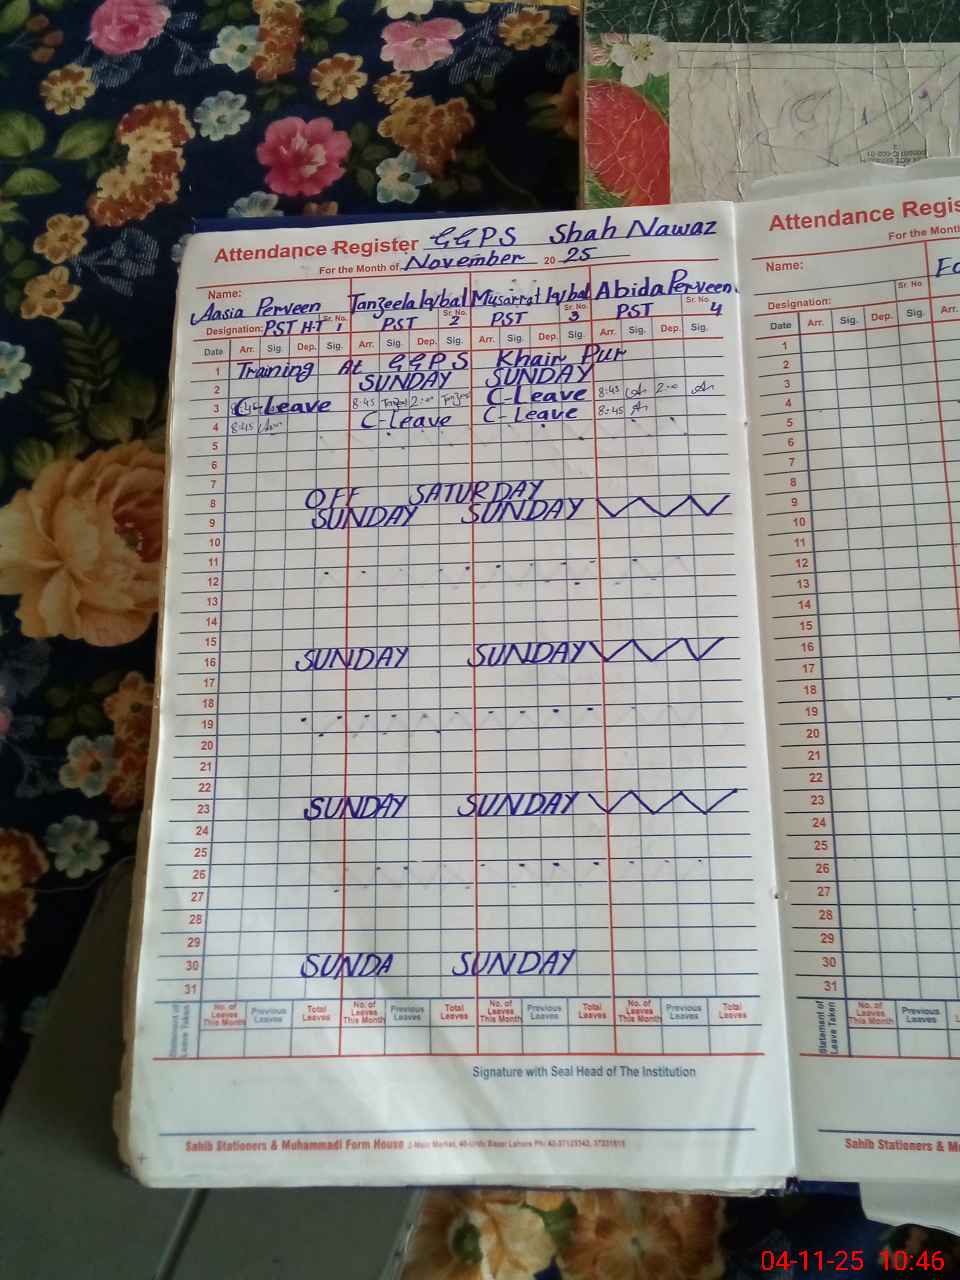 Attendance Register GGPS Shah Nawaz
For the Month of November 2025
Name: Aasia Perveen Tanzeela Iqbal Musarrat Iqbal Abida Perveen
Designation: PST H-T Sr. No. 1 PST Sr. No. 2 PST Sr. No. 3 PST Sr. No. 4
Date Arr. Sig. Dep. Sig. Arr. Sig. Dep. Sig. Arr. Sig. Dep. Sig. Arr. Sig. Dep. Sig.
1 Training At GGPS Khair Pur
2 SUNDAY SUNDAY
3 C-Leave 8:45 2:00 C-Leave 8:45 2:00
4 8:45 C-Leave C-Leave 8:45
5
6
7
8 OFF SATURDAY
9 SUNDAY SUNDAY
10
11
12
13
14
15
16 SUNDAY SUNDAY
17
18
19
20
21
22
23 SUNDAY SUNDAY
24
25
26
27
28
29
30 SUNDA SUNDAY
31
Statement of Leave Taken
No. of Leaves This Month Previous Leaves Total Leaves No. of Leaves This Month Previous Leaves Total Leaves No. of Leaves This Month Previous Leaves Total Leaves No. of Leaves This Month Previous Leaves Total Leaves
Signature with Seal Head of The Institution
Sahib Stationers & Muhammadi Form House 2-Main Market, 40-Urdu Bazar Lahore
Attendance Regis
For the Mont
Name:
Designation: Sr. No.
Date Arr. Sig. Dep. Sig. Arr.
1
2
3
4
5
6
7
8
9
10
11
12
13
14
15
16
17
18
19
20
21
22
23
24
25
26
27
28
29
30
31
Statement of Leave Taken
No. of Leaves This Month Previous Leaves
Sahib Stationers & M
04-11-25 10:46